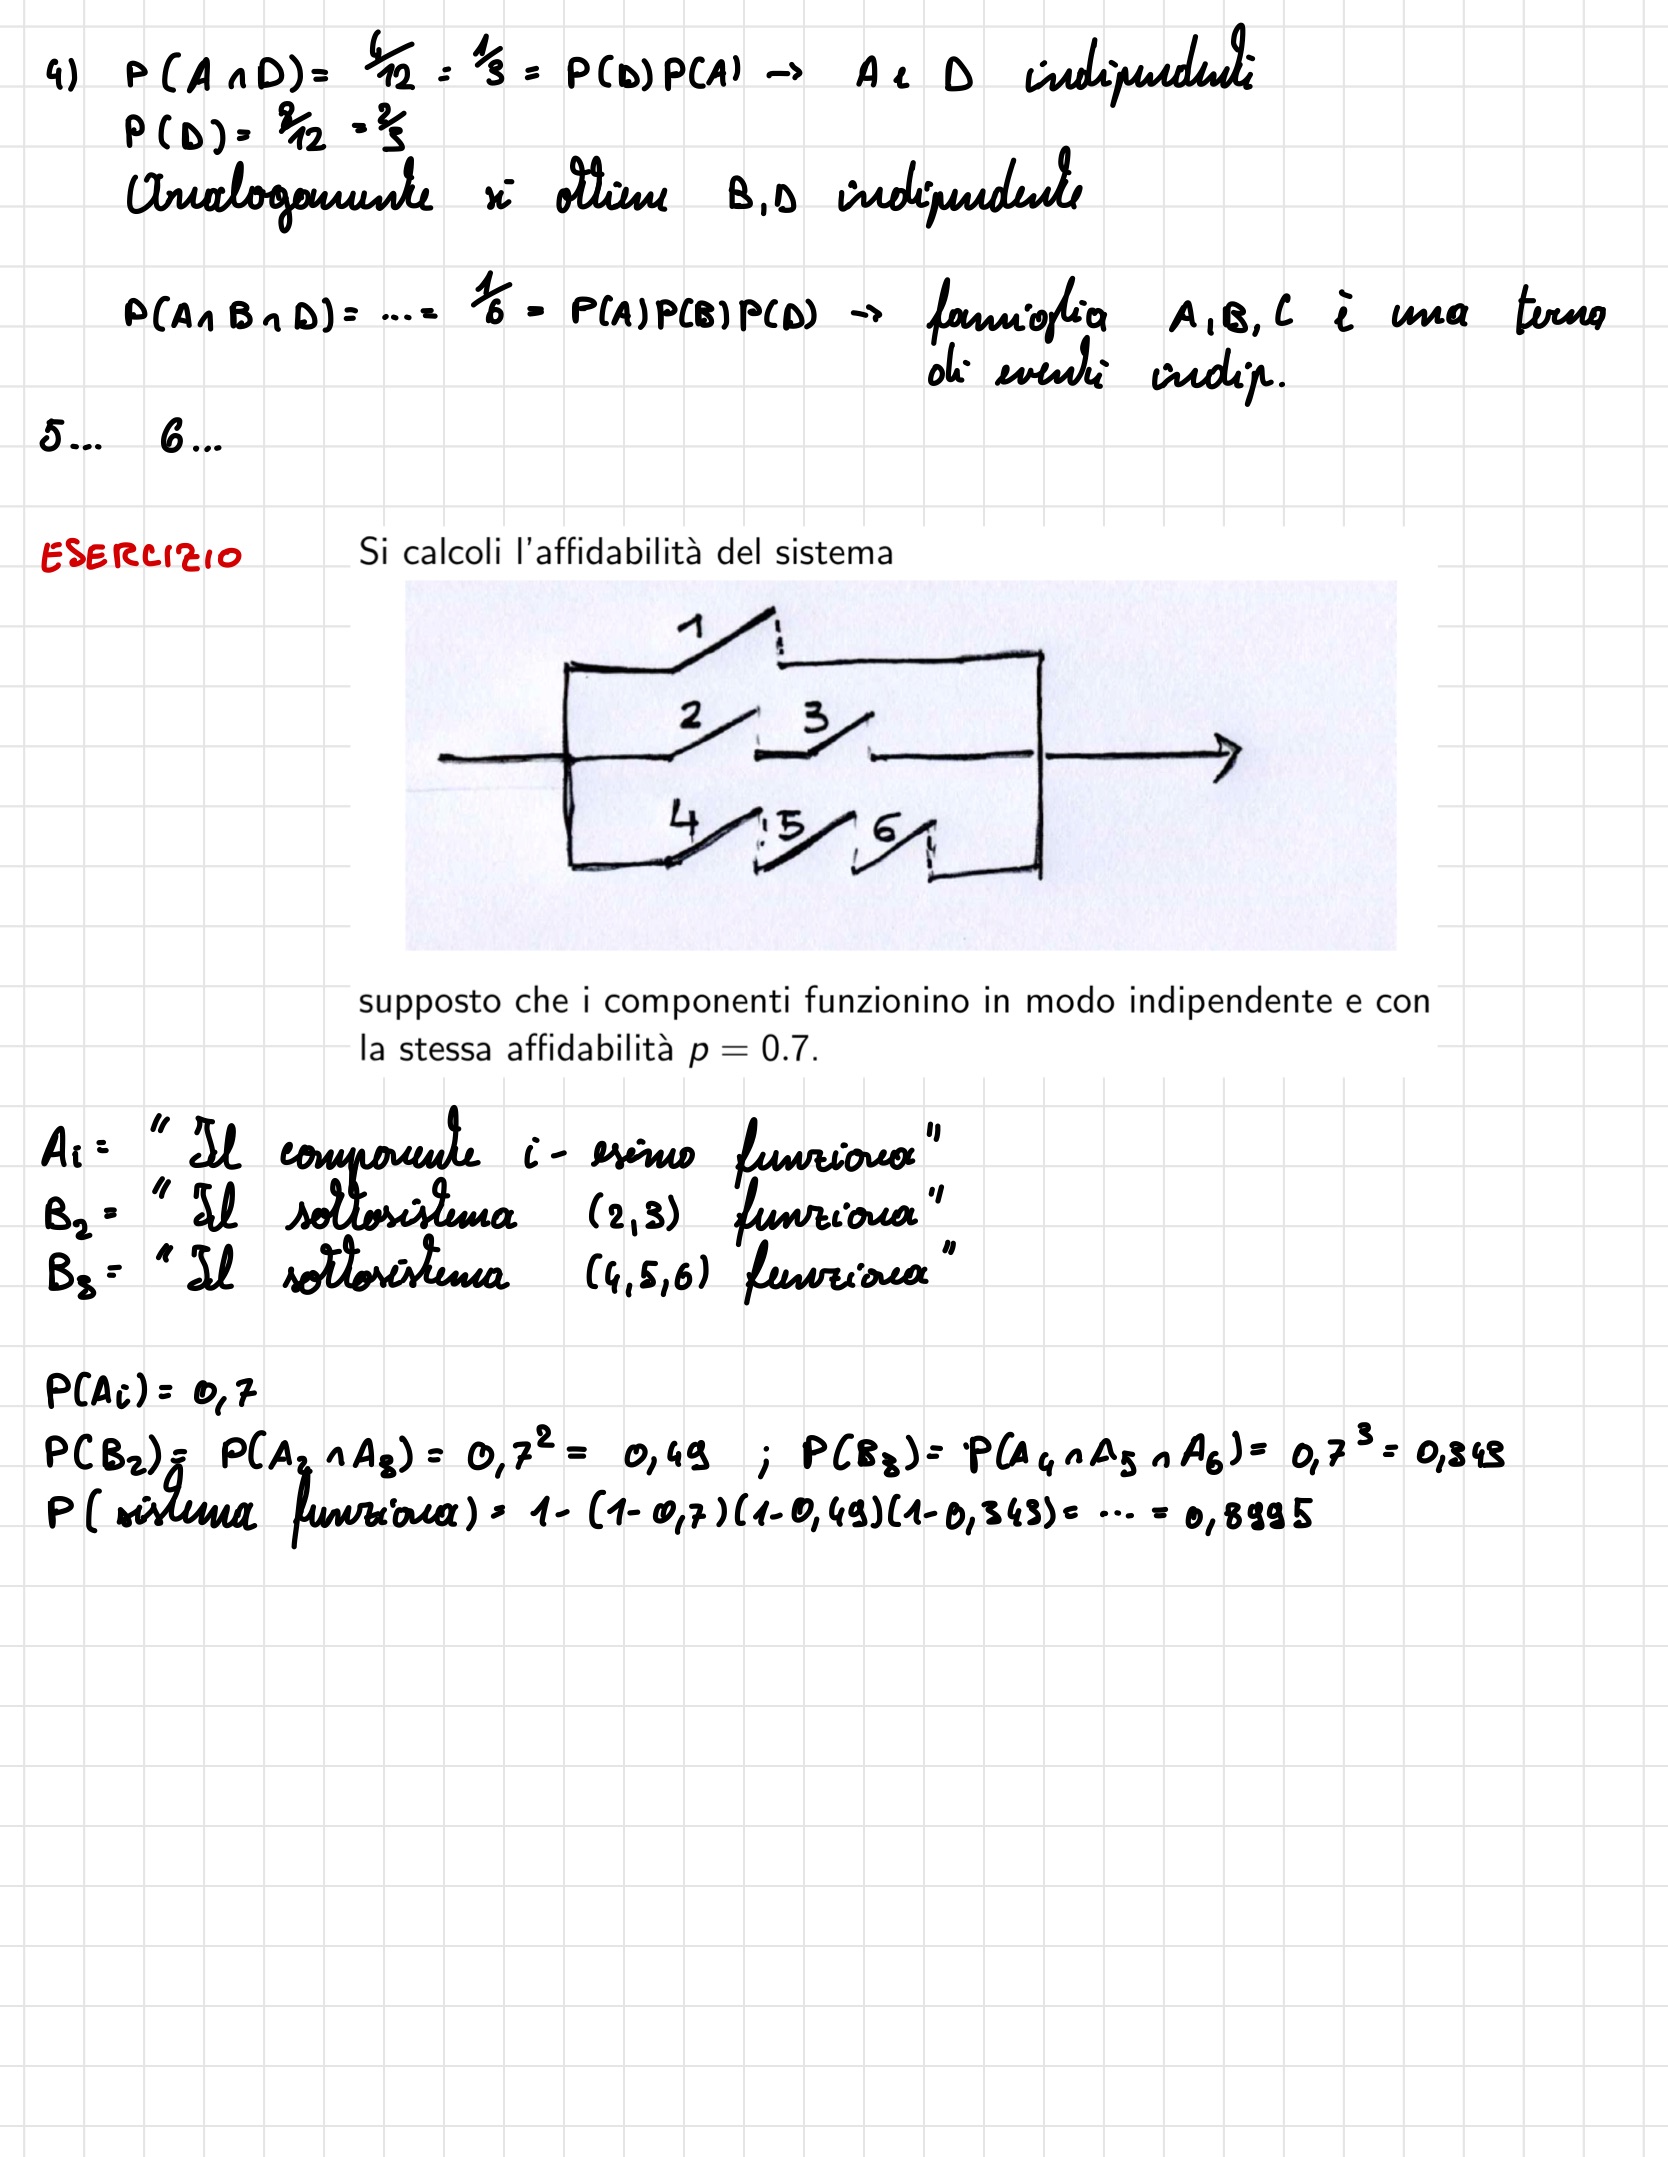 4) P(A∩D) = 4/12 = 1/3 = P(D)P(A) → A e D indipendenti
P(D) = 8/12 = 2/3
Analogamente si ottiene B,D indipendente
P(A∩B∩D) = ... = 1/6 = P(A)P(B)P(D) → famioglia A,B,C è una terna
di eventi indip.
5... 6...
ESERCIZIO Si calcoli l'affidabilità del sistema
1
2 3
4 5 6
supposto che i componenti funzionino in modo indipendente e con
la stessa affidabilità p = 0.7.
Ai = "Il componente i-esimo funziona"
B₂ = "Il sottosistema (2,3) funziona"
B₃ = "Il sottosistema (4,5,6) funziona"
P(Ai) = 0,7
P(B₂) = P(A₂∩A₃) = 0,7² = 0,49 ; P(B₃) = P(A₄∩A₅∩A₆) = 0,7³ = 0,343
P(sistema funziona) = 1-(1-0,7)(1-0,49)(1-0,343) = ... = 0,8995